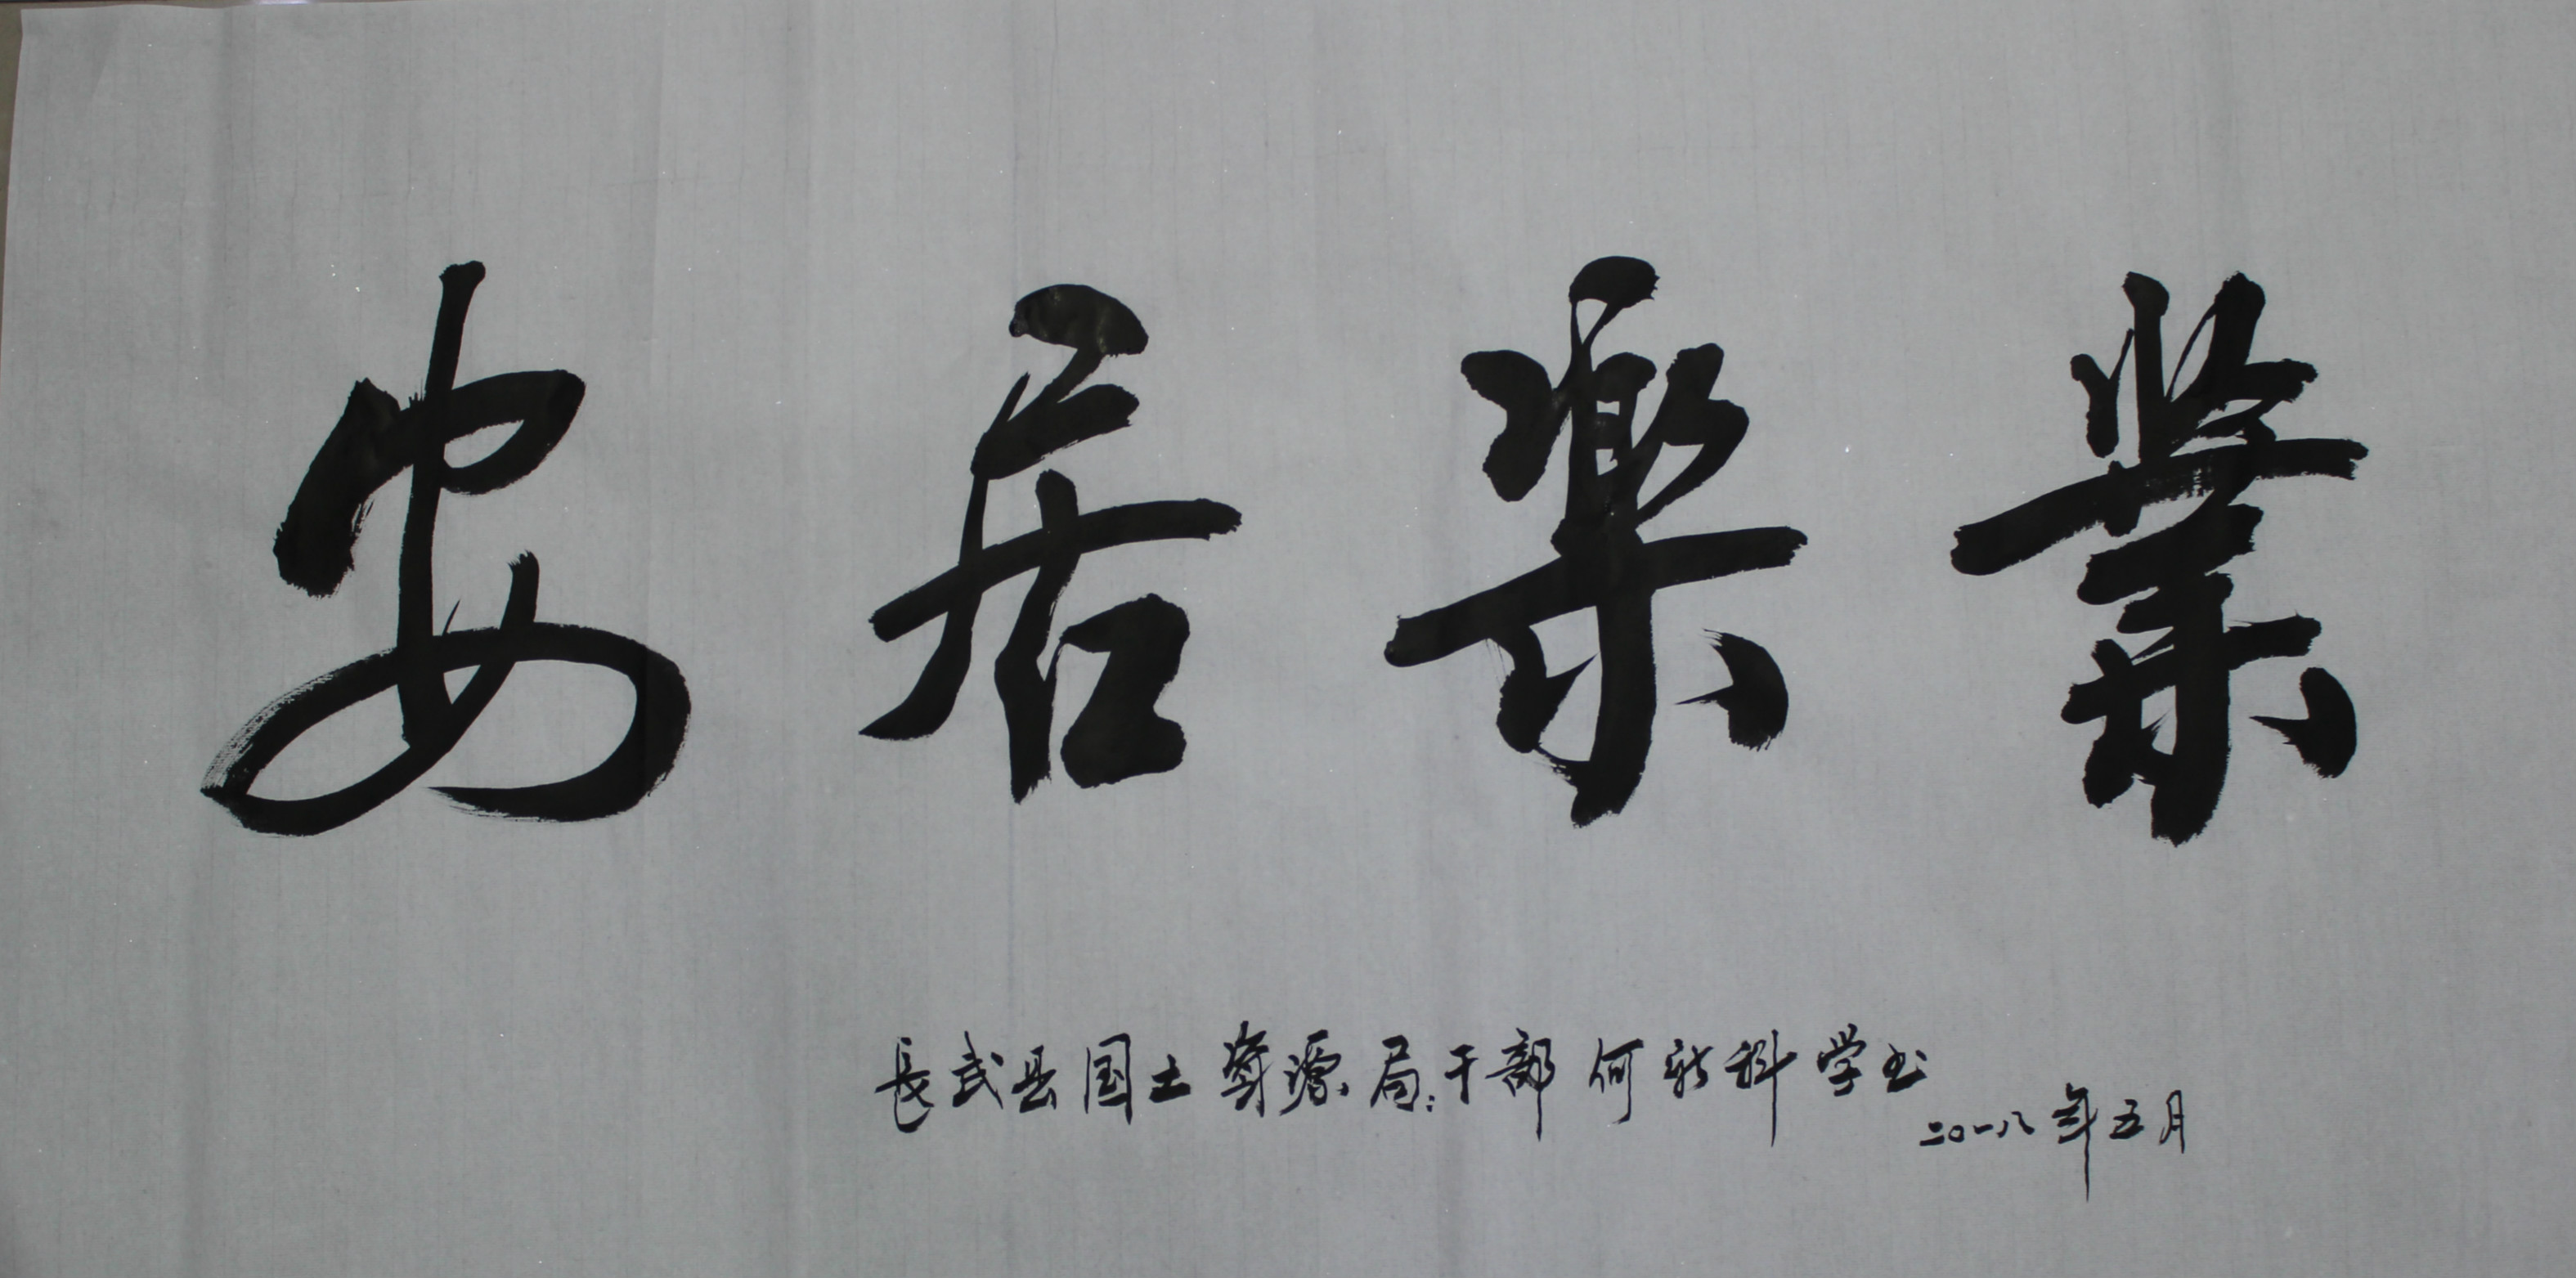 安居樂業
長武县国土资源局:干部 何新科学书
二〇一八年五月